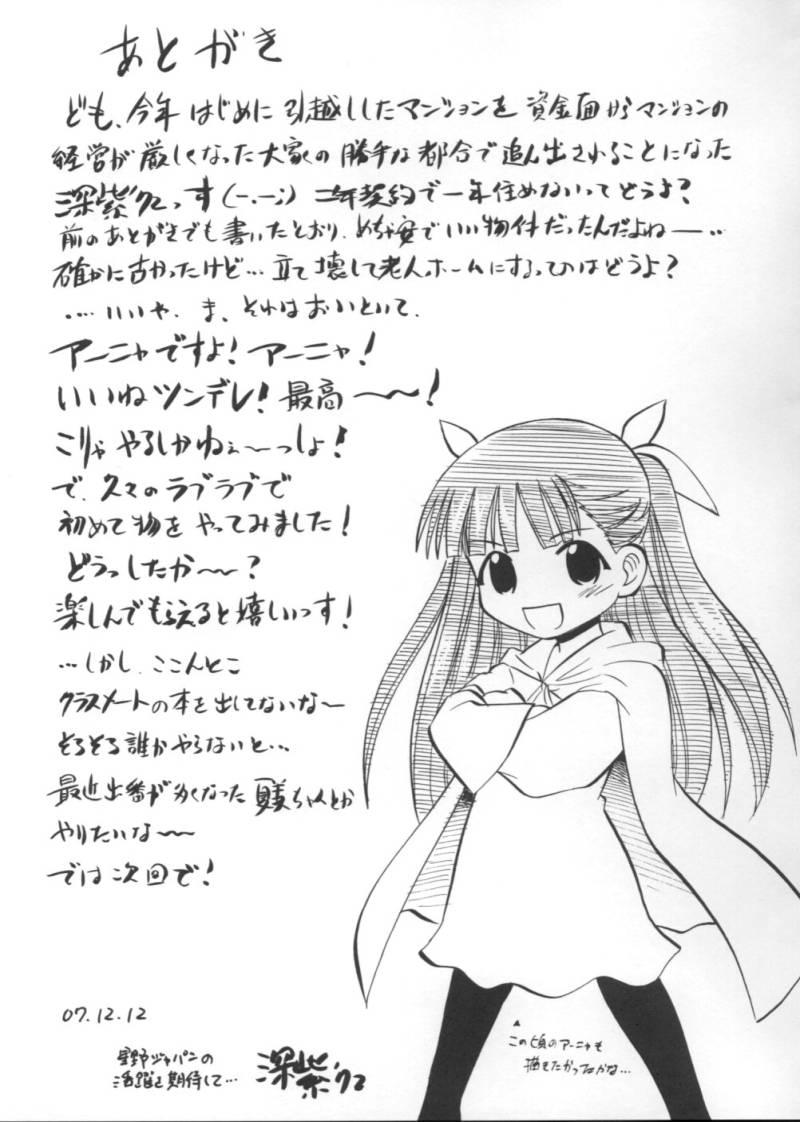 あとがき
ども、今年はじめに引越ししたマンションを資金面からマンションの
経営が厳しくなった大家の勝手な都合で追ん出されることになった
深紫'72っす(-.-;) 二年契約で一年住めないってどうよ?
前のあとがきでも書いたとおり、めちゃ安でいい物件だったんだよねー…
確かに古かったけど…立て壊して老人ホームにするってのはどうよ?
……いいや、ま、それはおいといて、
アーニャですよ!アーニャ!
いいねツンデレ!最高〜〜!
こりゃやるしかねぇ〜っしょ!
で、久々のラブラブで
初めて物をやってみました!
どうっしたか〜〜?
楽しんでもらえると嬉しいっす!
…しかし、ここんとこ
クラスメートの本を出してないな〜
そろそろ誰かやらないと…
最近出番が多くなったちゃんとか
やりたいな〜〜
では次回で!
07.12.12
星野ジャパンの
活躍を期待して…
深紫'72
▲
この頃のアーニャも
描きたかったかな…